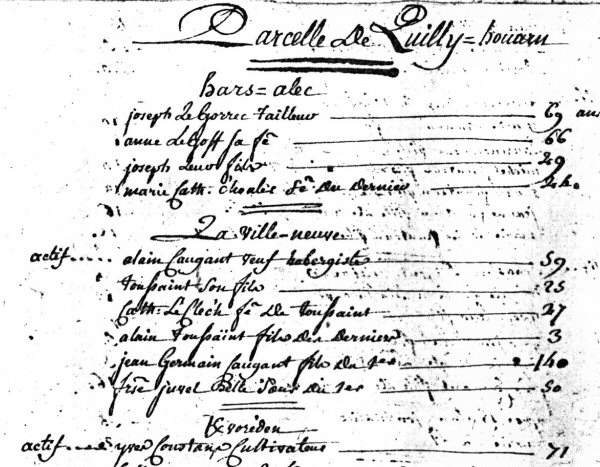 Parcelle De Quilly=houarn
hars=alec
joseph Le Gorrec tailleur 69 ans
anne Le Goff sa fe 66
joseph leur fils 29
marie Cath. fe Du Dernier 24.
La ville-neuve
actif..... alain Caugant veuf aubergiste 59
toussaint son fils 25
Cath. Le Cloch fe De toussaint 27
alain toussaint fils du Dernier 3
jean Germain Caugant fils Du 1er 14
juvel Belle Soeur Du 1er 50
Kvoreden
actif.... yves Constans Cultivateur 71